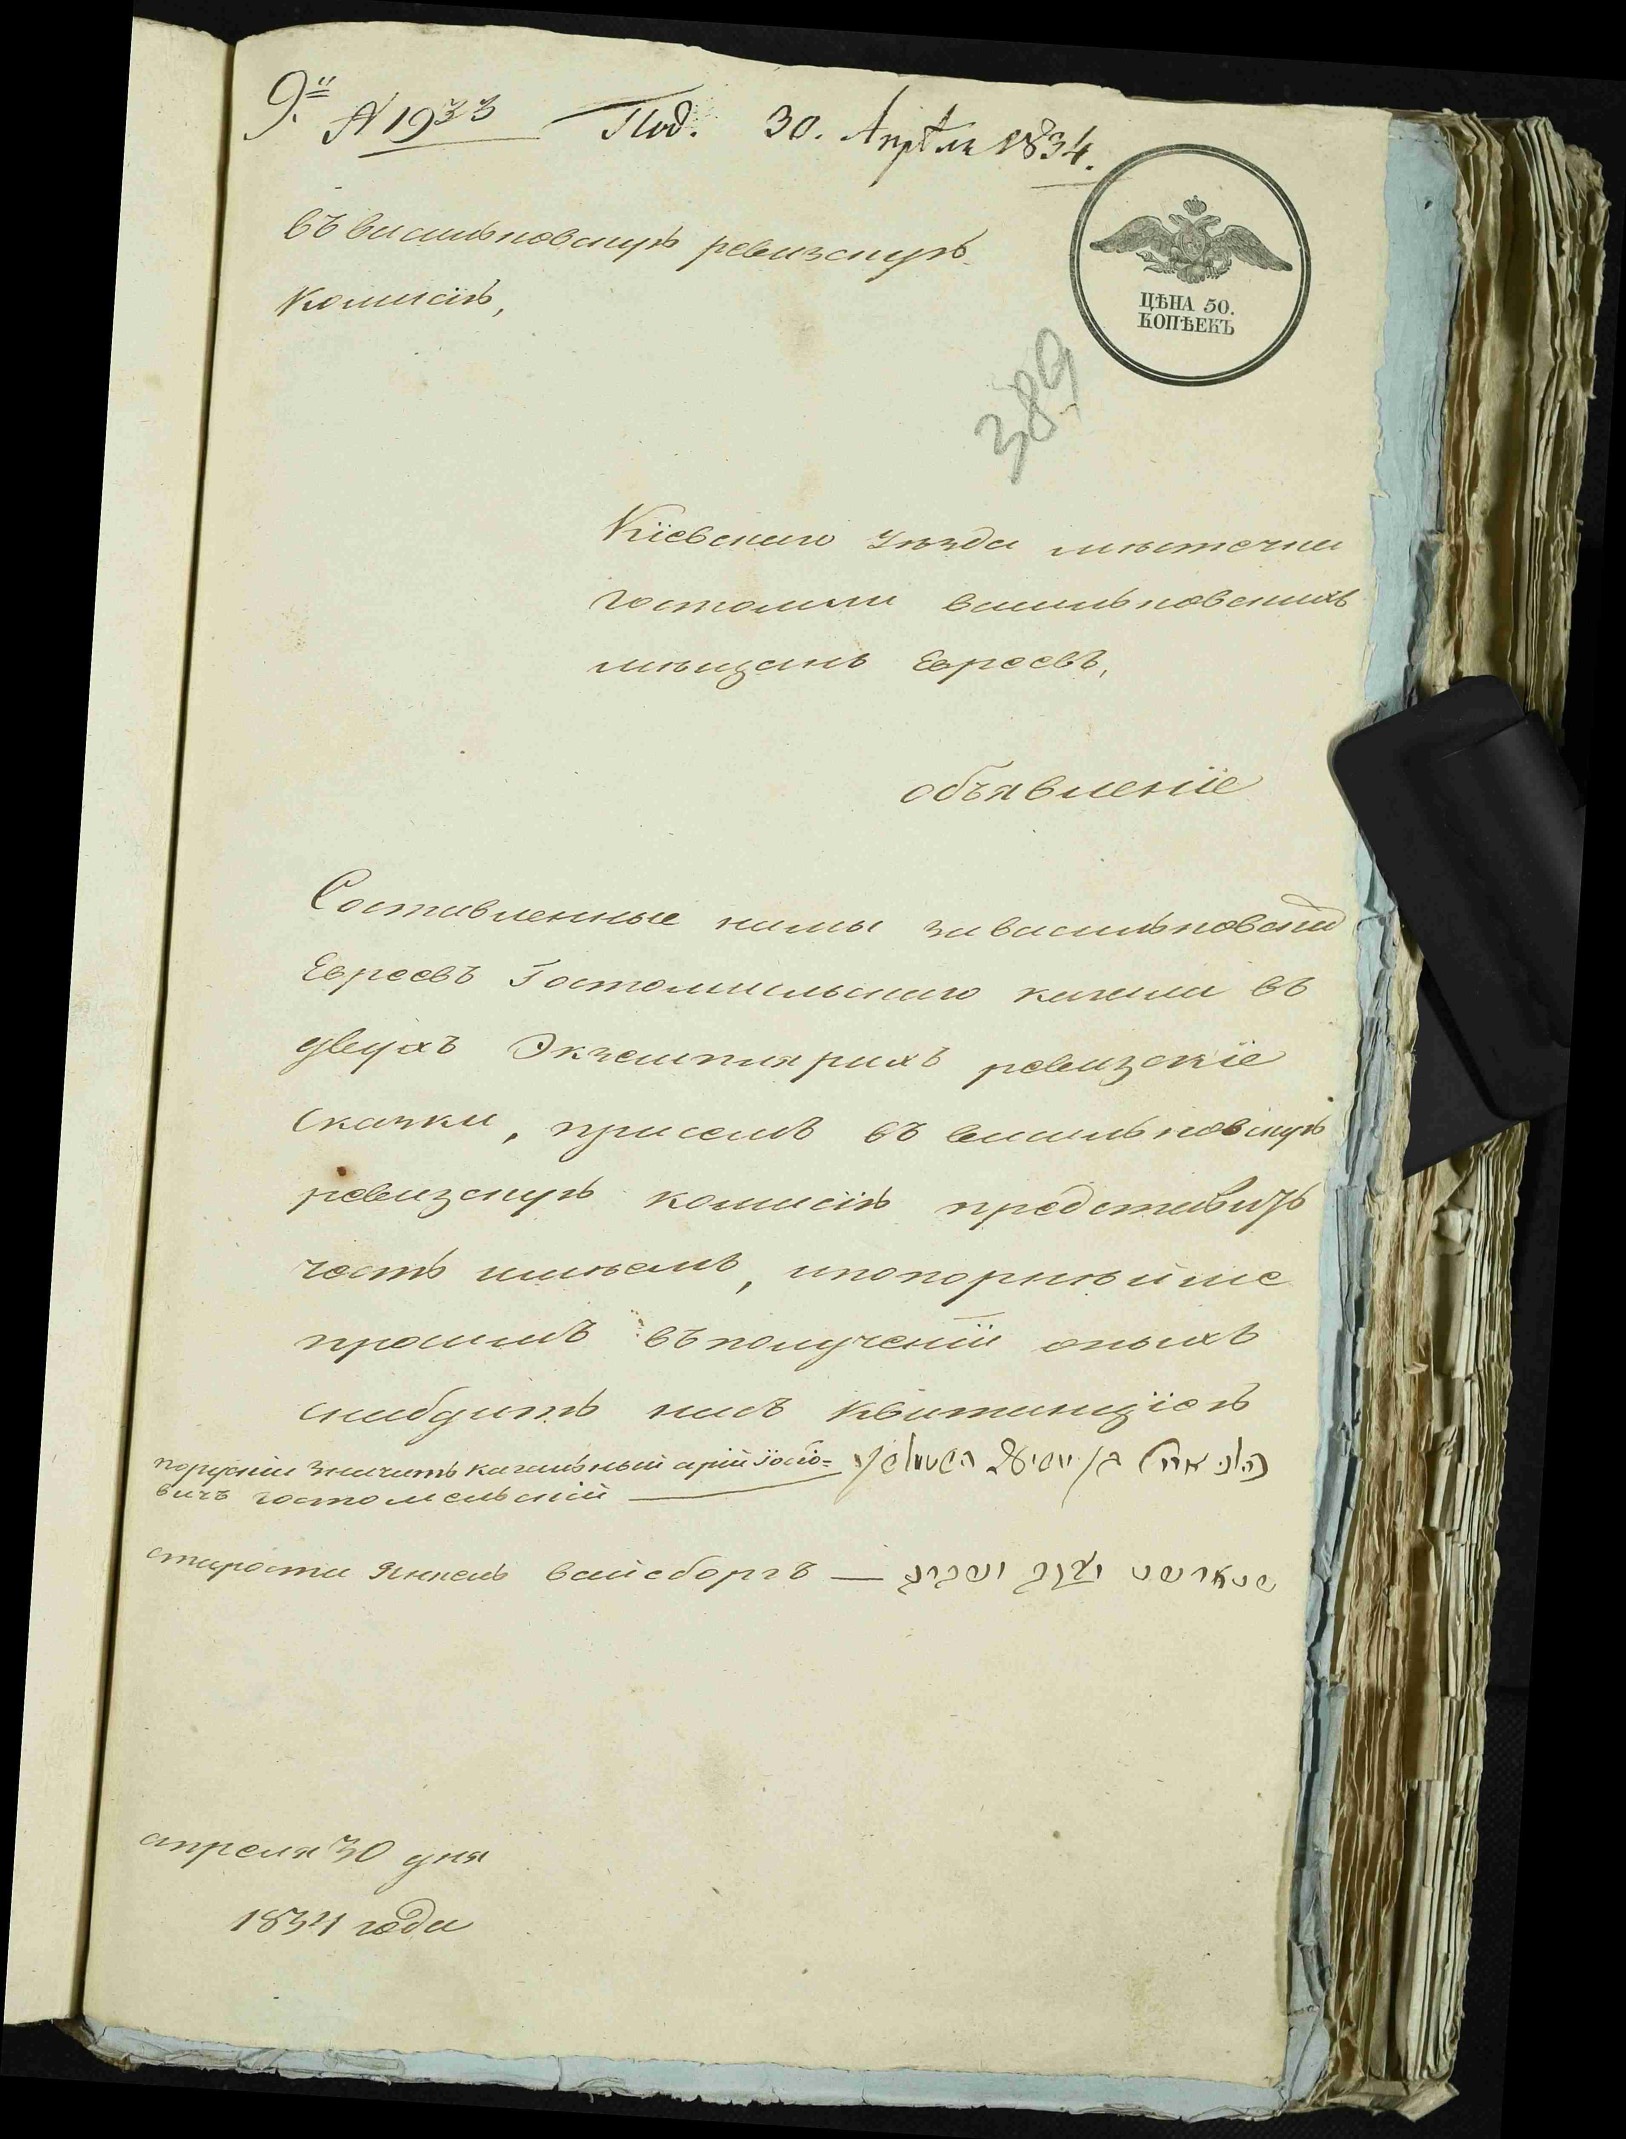 9. № 1933 Под. 30. Апрѣля 1834.
ЦѢНА 50.
КОПѢЕКЪ
389
въ васильковскую ревизскую
Комисію,
Кіевскаго уѣзда мѣстечка
гостомля васильковскихъ
мѣщанъ Евреевъ,
объявленіе
Составленные намы за васильковскихъ
Евреевъ Гостомысльскаго кагала въ
двухъ Экземплярахъ ревизскіе
Сказки, присемъ въ васильковскую
ревизскую комисію представить
честь имѣемъ, и покорнѣйше
просимъ въ полученіи оныхъ
снабдить насъ Квитанціею
порускіи значитъ кагальный арій Іосіо=
вичъ гостомельскій
староста Янкель вайсборгъ —
апреля 30 дня
1834 года